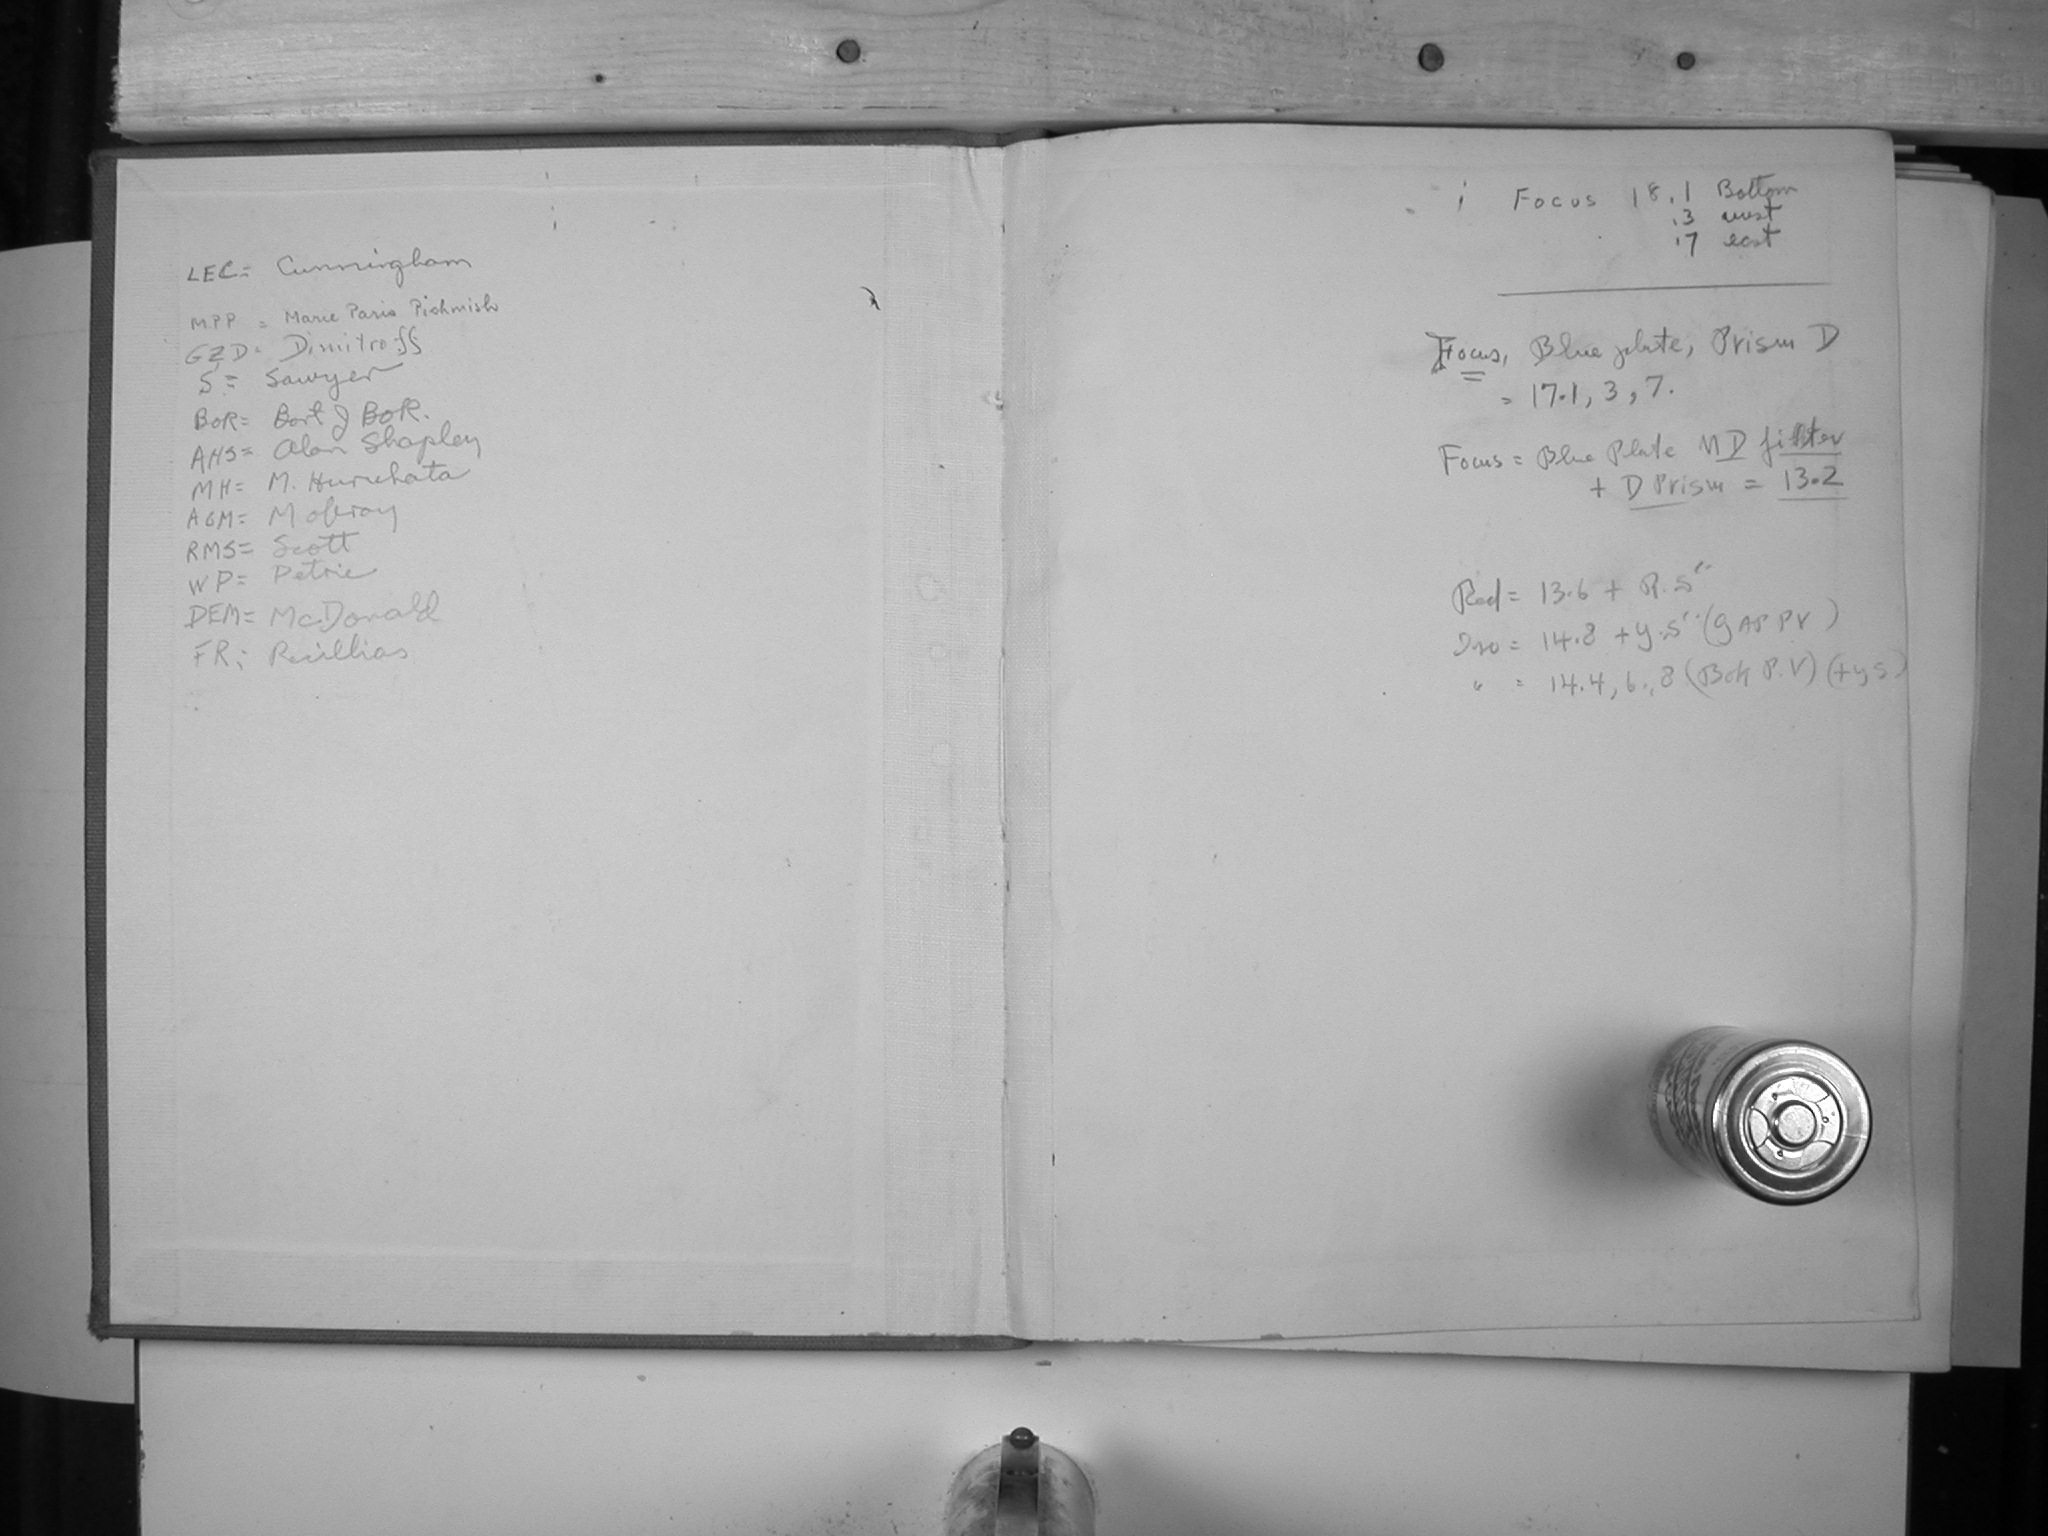 LEC = Cunningham
MPP = Marie Paris Pishmish
GZD = Dimitroff
S = Sawyer
BOR = Bart J BOK.
AHS = Alan Shapley
MH = M. Huruhata
AGM = Mobray
RMS = Scott
WP = Petrie
DEM = McDonald
FR:
Focus 18.1 Bottom
.3 west
.7 east
Focus, Blue plate, Prism D
= 17.1, 3, 7.
Focus = Blue Plate MD filter
+ D Prism = 13.2
Red = 13.6 + R.S"
Iso = 14.8 + y.S"
" = 14.4, 6, 8 (Bok P.V) (+yS)